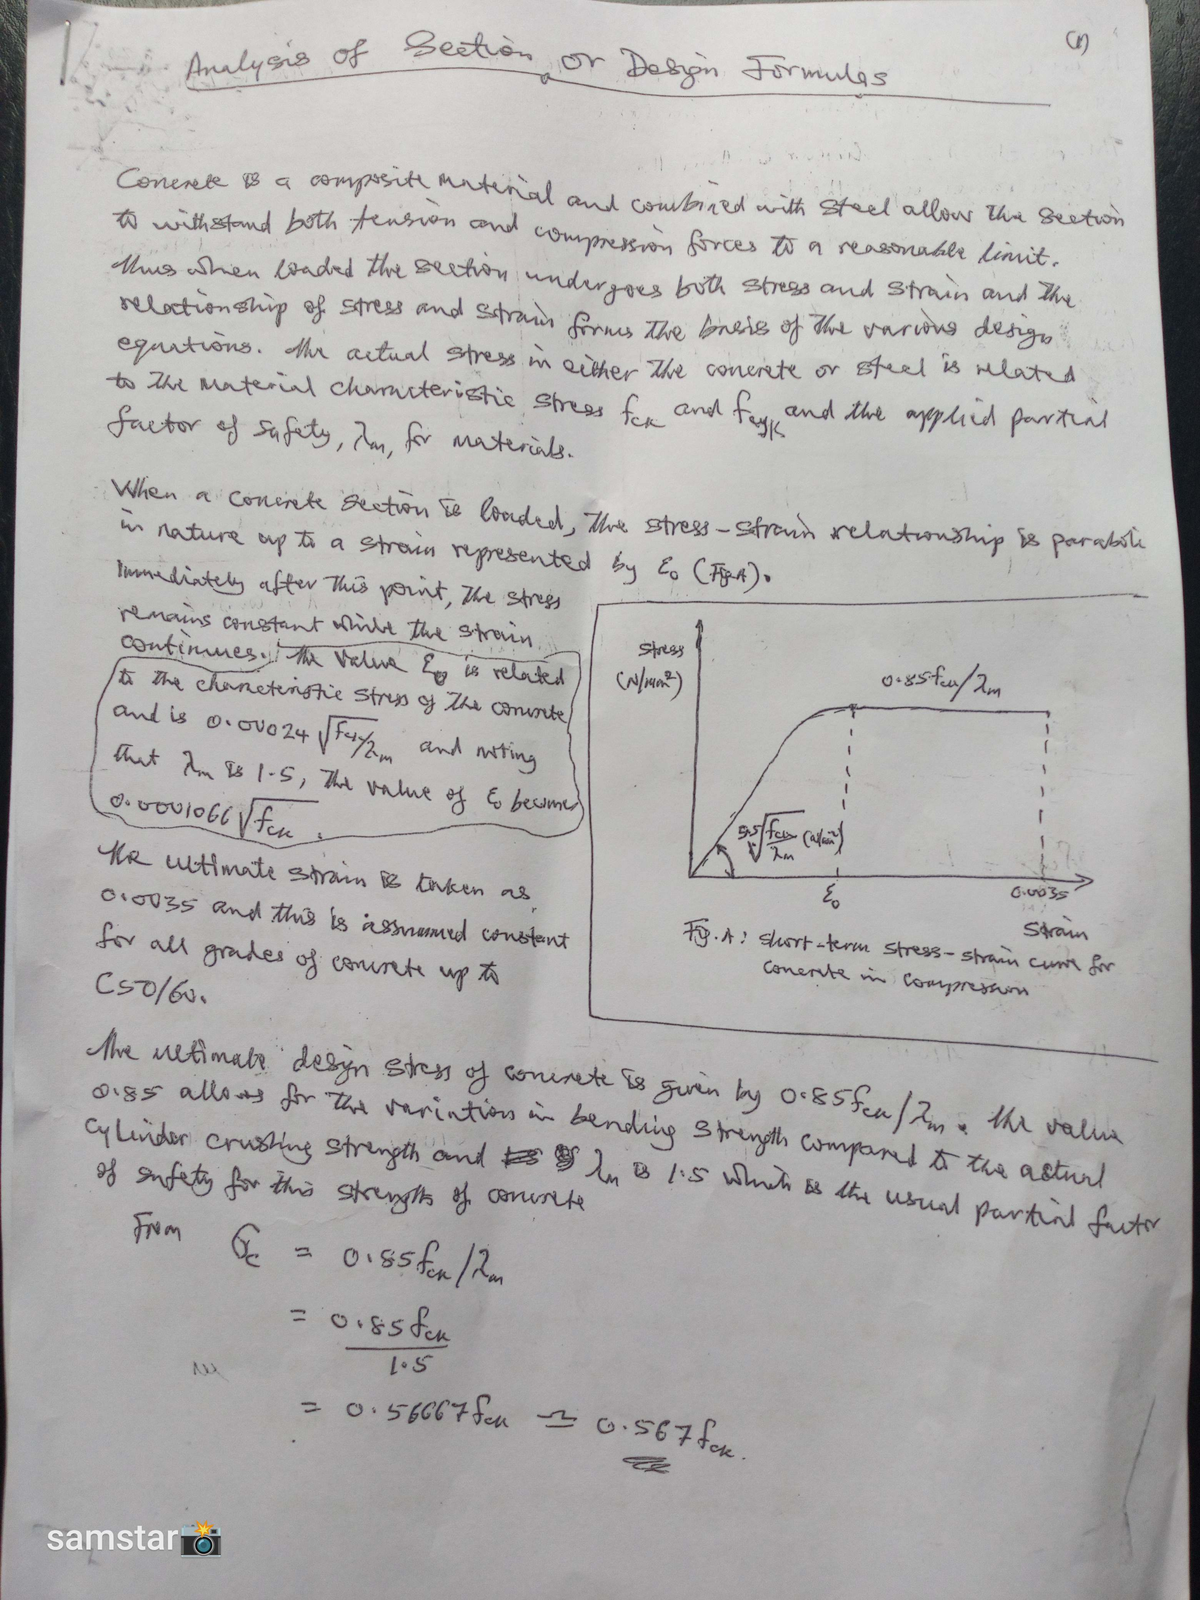 (1)
Analysis of Section or Design Formulas
Concrete is a composite material and combined with steel allow the section
to withstand both tension and compression forces to a reasonable limit.
Thus when loaded the section undergoes both stress and strain and the
relationship of stress and strain forms the basis of the various design
equations. The actual stress in either the concrete or steel is related
to the material characteristic stress fck and fcyk and the applied partial
factor of safety, λm, for materials.
When a concrete section is loaded, the stress-strain relationship is parabolic
in nature up to a strain represented by ε₀ (Fig.A).
Immediately after this point, the stress
remains constant while the strain
continues. The value ε₀ is related
to the characteristic stress of the concrete
and is 0.00024 √fck/λm and noting
that λm is 1.5, the value of ε₀ becomes
0.0001066 √fck.
The ultimate strain is taken as
0.0035 and this is assumed constant
for all grades of concrete up to
C50/60.
Stress
(N/mm²)
0.85fck/λm
5.5 √fck/λm (N/mm²)
ε₀
0.0035
Strain
Fig.A: Short-term stress-strain curve for
concrete in compression
The ultimate design stress of concrete is given by 0.85fck/λm. The value
0.85 allows for the variation in bending strength compared to the actual
cylinder crushing strength and λm is 1.5 which is the usual partial factor
of safety for this strength of concrete
From σc = 0.85fck/λm
= 0.85fck
1.5
= 0.56667fck ≃ 0.567fck.
samstar📸